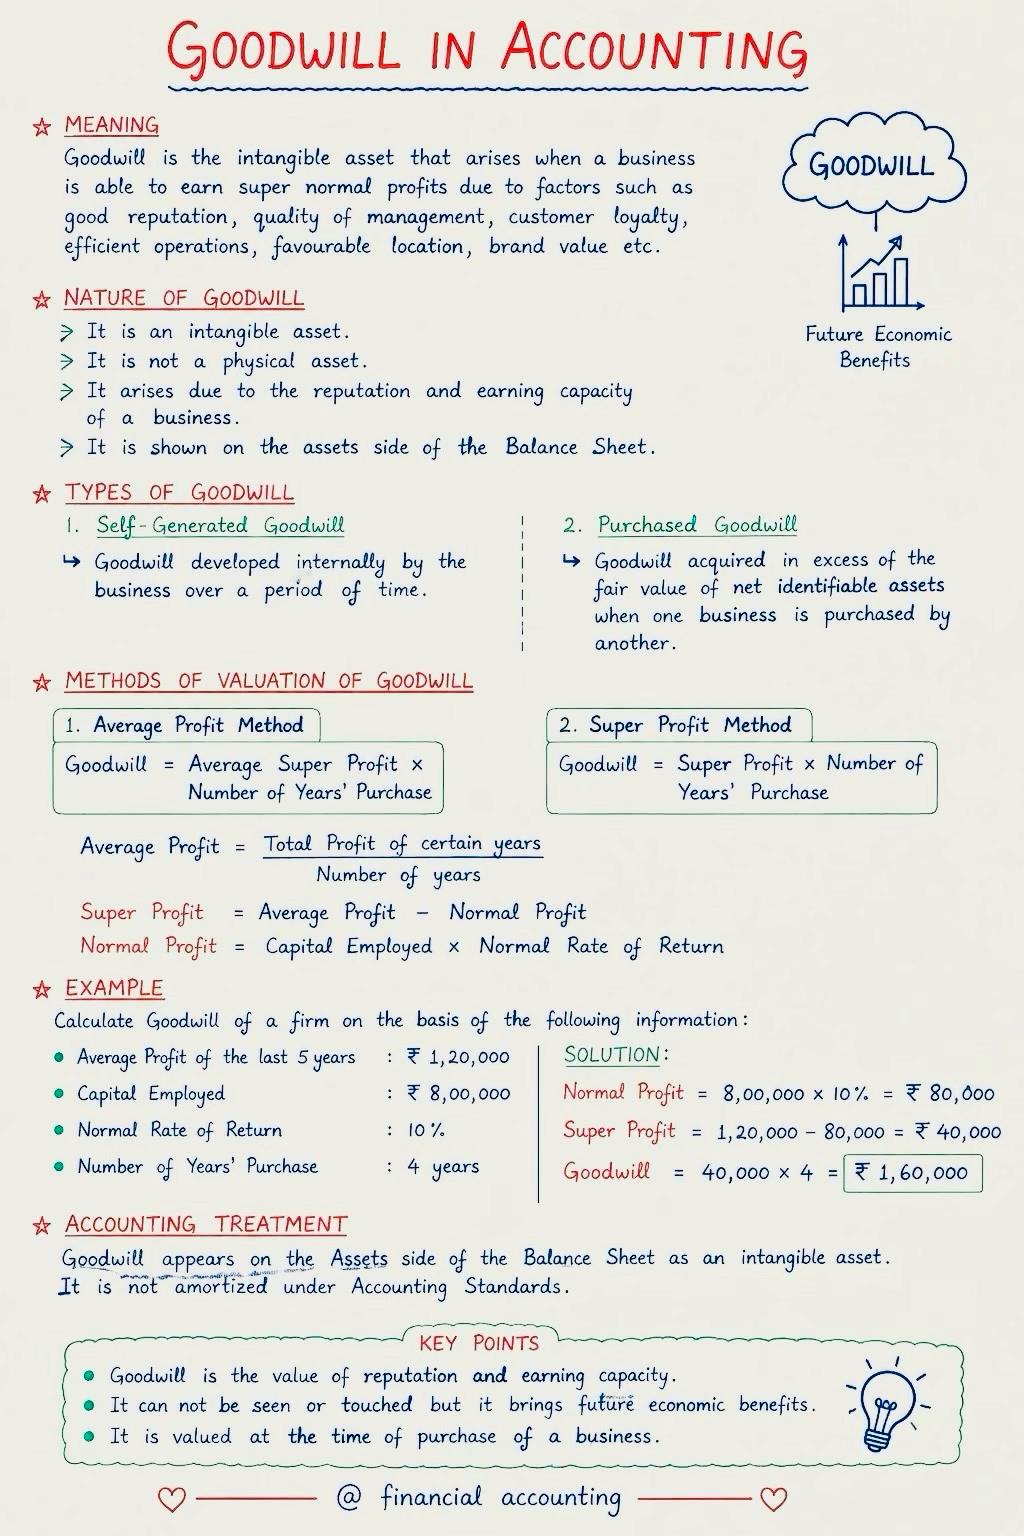 GOODWILL IN ACCOUNTING
☆ MEANING
Goodwill is the intangible asset that arises when a business
is able to earn super normal profits due to factors such as
good reputation, quality of management, customer loyalty,
efficient operations, favourable location, brand value etc.
GOODWILL
Future Economic
Benefits
☆ NATURE OF GOODWILL
It is an intangible asset.
It is not a physical asset.
It arises due to the reputation and earning capacity
of a business.
It is shown on the assets side of the Balance Sheet.
☆ TYPES OF GOODWILL
1. Self-Generated Goodwill
↳ Goodwill developed internally by the
business over a period of time.
2. Purchased Goodwill
↳ Goodwill acquired in excess of the
fair value of net identifiable assets
when one business is purchased by
another.
☆ METHODS OF VALUATION OF GOODWILL
1. Average Profit Method
Goodwill = Average Super Profit ×
Number of Years' Purchase
2. Super Profit Method
Goodwill = Super Profit × Number of
Years' Purchase
Average Profit = Total Profit of certain years
Number of years
Super Profit = Average Profit − Normal Profit
Normal Profit = Capital Employed × Normal Rate of Return
☆ EXAMPLE
Calculate Goodwill of a firm on the basis of the following information:
• Average Profit of the last 5 years : ₹ 1,20,000
• Capital Employed : ₹ 8,00,000
• Normal Rate of Return : 10%
• Number of Years' Purchase : 4 years
SOLUTION:
Normal Profit = 8,00,000 × 10% = ₹ 80,000
Super Profit = 1,20,000 − 80,000 = ₹ 40,000
Goodwill = 40,000 × 4 = ₹ 1,60,000
☆ ACCOUNTING TREATMENT
Goodwill appears on the Assets side of the Balance Sheet as an intangible asset.
It is not amortized under Accounting Standards.
KEY POINTS
• Goodwill is the value of reputation and earning capacity.
• It can not be seen or touched but it brings future economic benefits.
• It is valued at the time of purchase of a business.
@ financial accounting